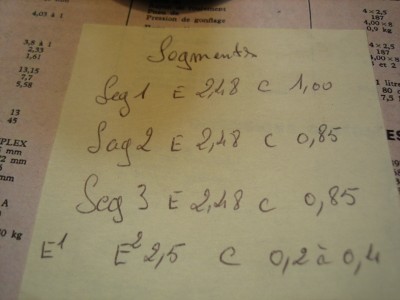 4,03 à 1
Pression de gonflage
4 × 2,5
187
4,00 × 8
0,9 kg
3,8 à 1
2,33
1,61
13,15
7,7
5,58
13
45
mm
72 mm
mm
A
kg
Segments
Seg 1 E 2,48 C 1,00
Seg 2 E 2,48 C 0,85
Seg 3 E 2,48 C 0,85
E1 E2 2,5 C 0,2 à 0,4
4 × 2,5
187
4,00 × 8
et 2
1 litre